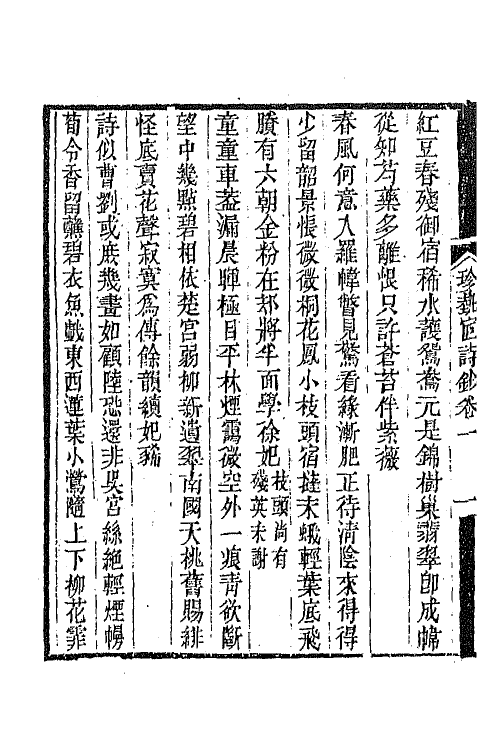 珍埶宧詩鈔卷一
一
紅豆春殘御宿稀水護鴛鴦元是錦樹巢翡翠卽成幃
從知芍藥多離恨只許蒼苔伴紫薇
春風何意入羅幃瞥見驚看綠漸肥正待淸陰來得得
少留韶景悵微微桐花鳳小枝頭宿撻末蛾輕葉底飛
賸有六朝金粉在却將半面學徐妃枝頭尚有
殘英未謝
童童車葢漏晨暉極目平林煙靄微空外一痕靑欲斷
望中幾㸃碧相依楚宮弱柳新遺翠南國夭桃舊賜緋
怪底賣花聲寂寞爲傳餘韻續妃豨
詩似曹劉或庶幾畫如顧陸恐還非吳宮絲絕輕煙幌
荀令香留蘸碧衣魚戲東西蓮葉小鶯隨上下柳花霏